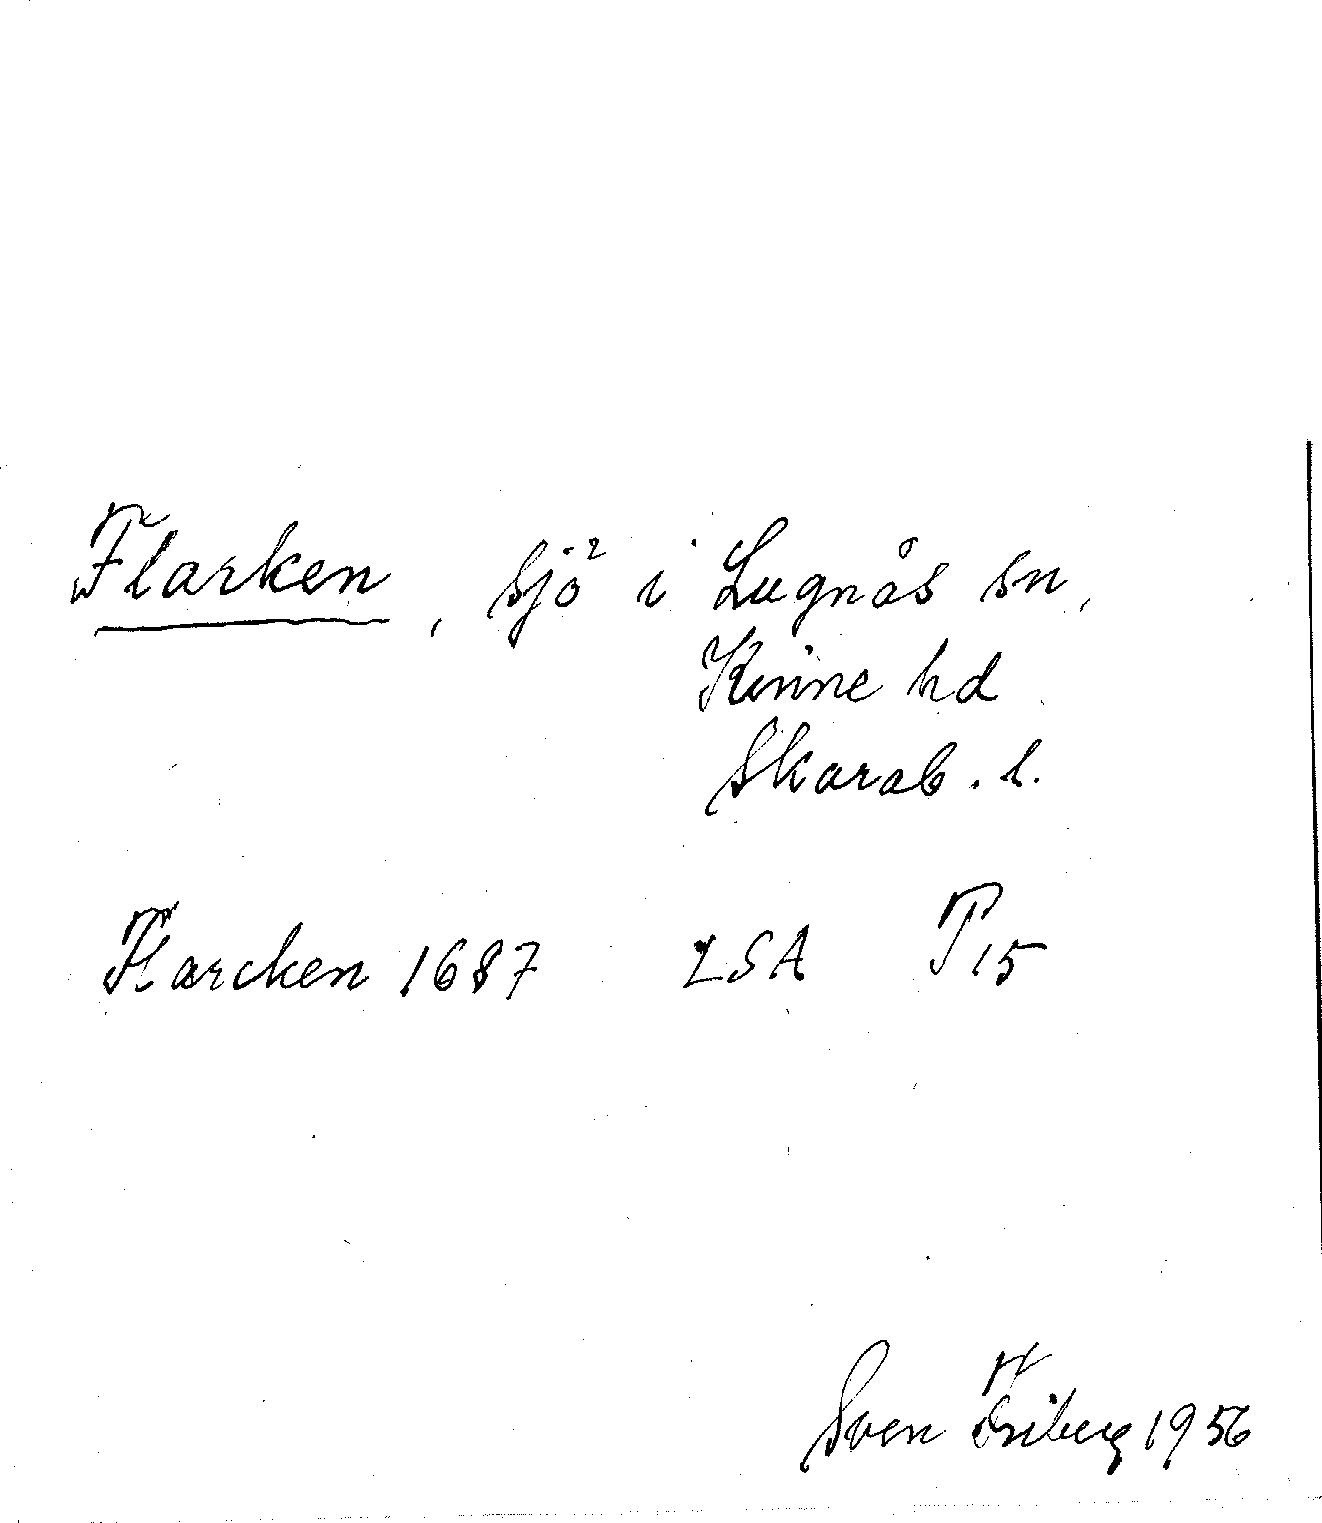 Flarken, sjö i Lugnås sn,
Kinne hd
Skarab. l.
Flarcken 1687 LSA P15
Sven Friberg 1956